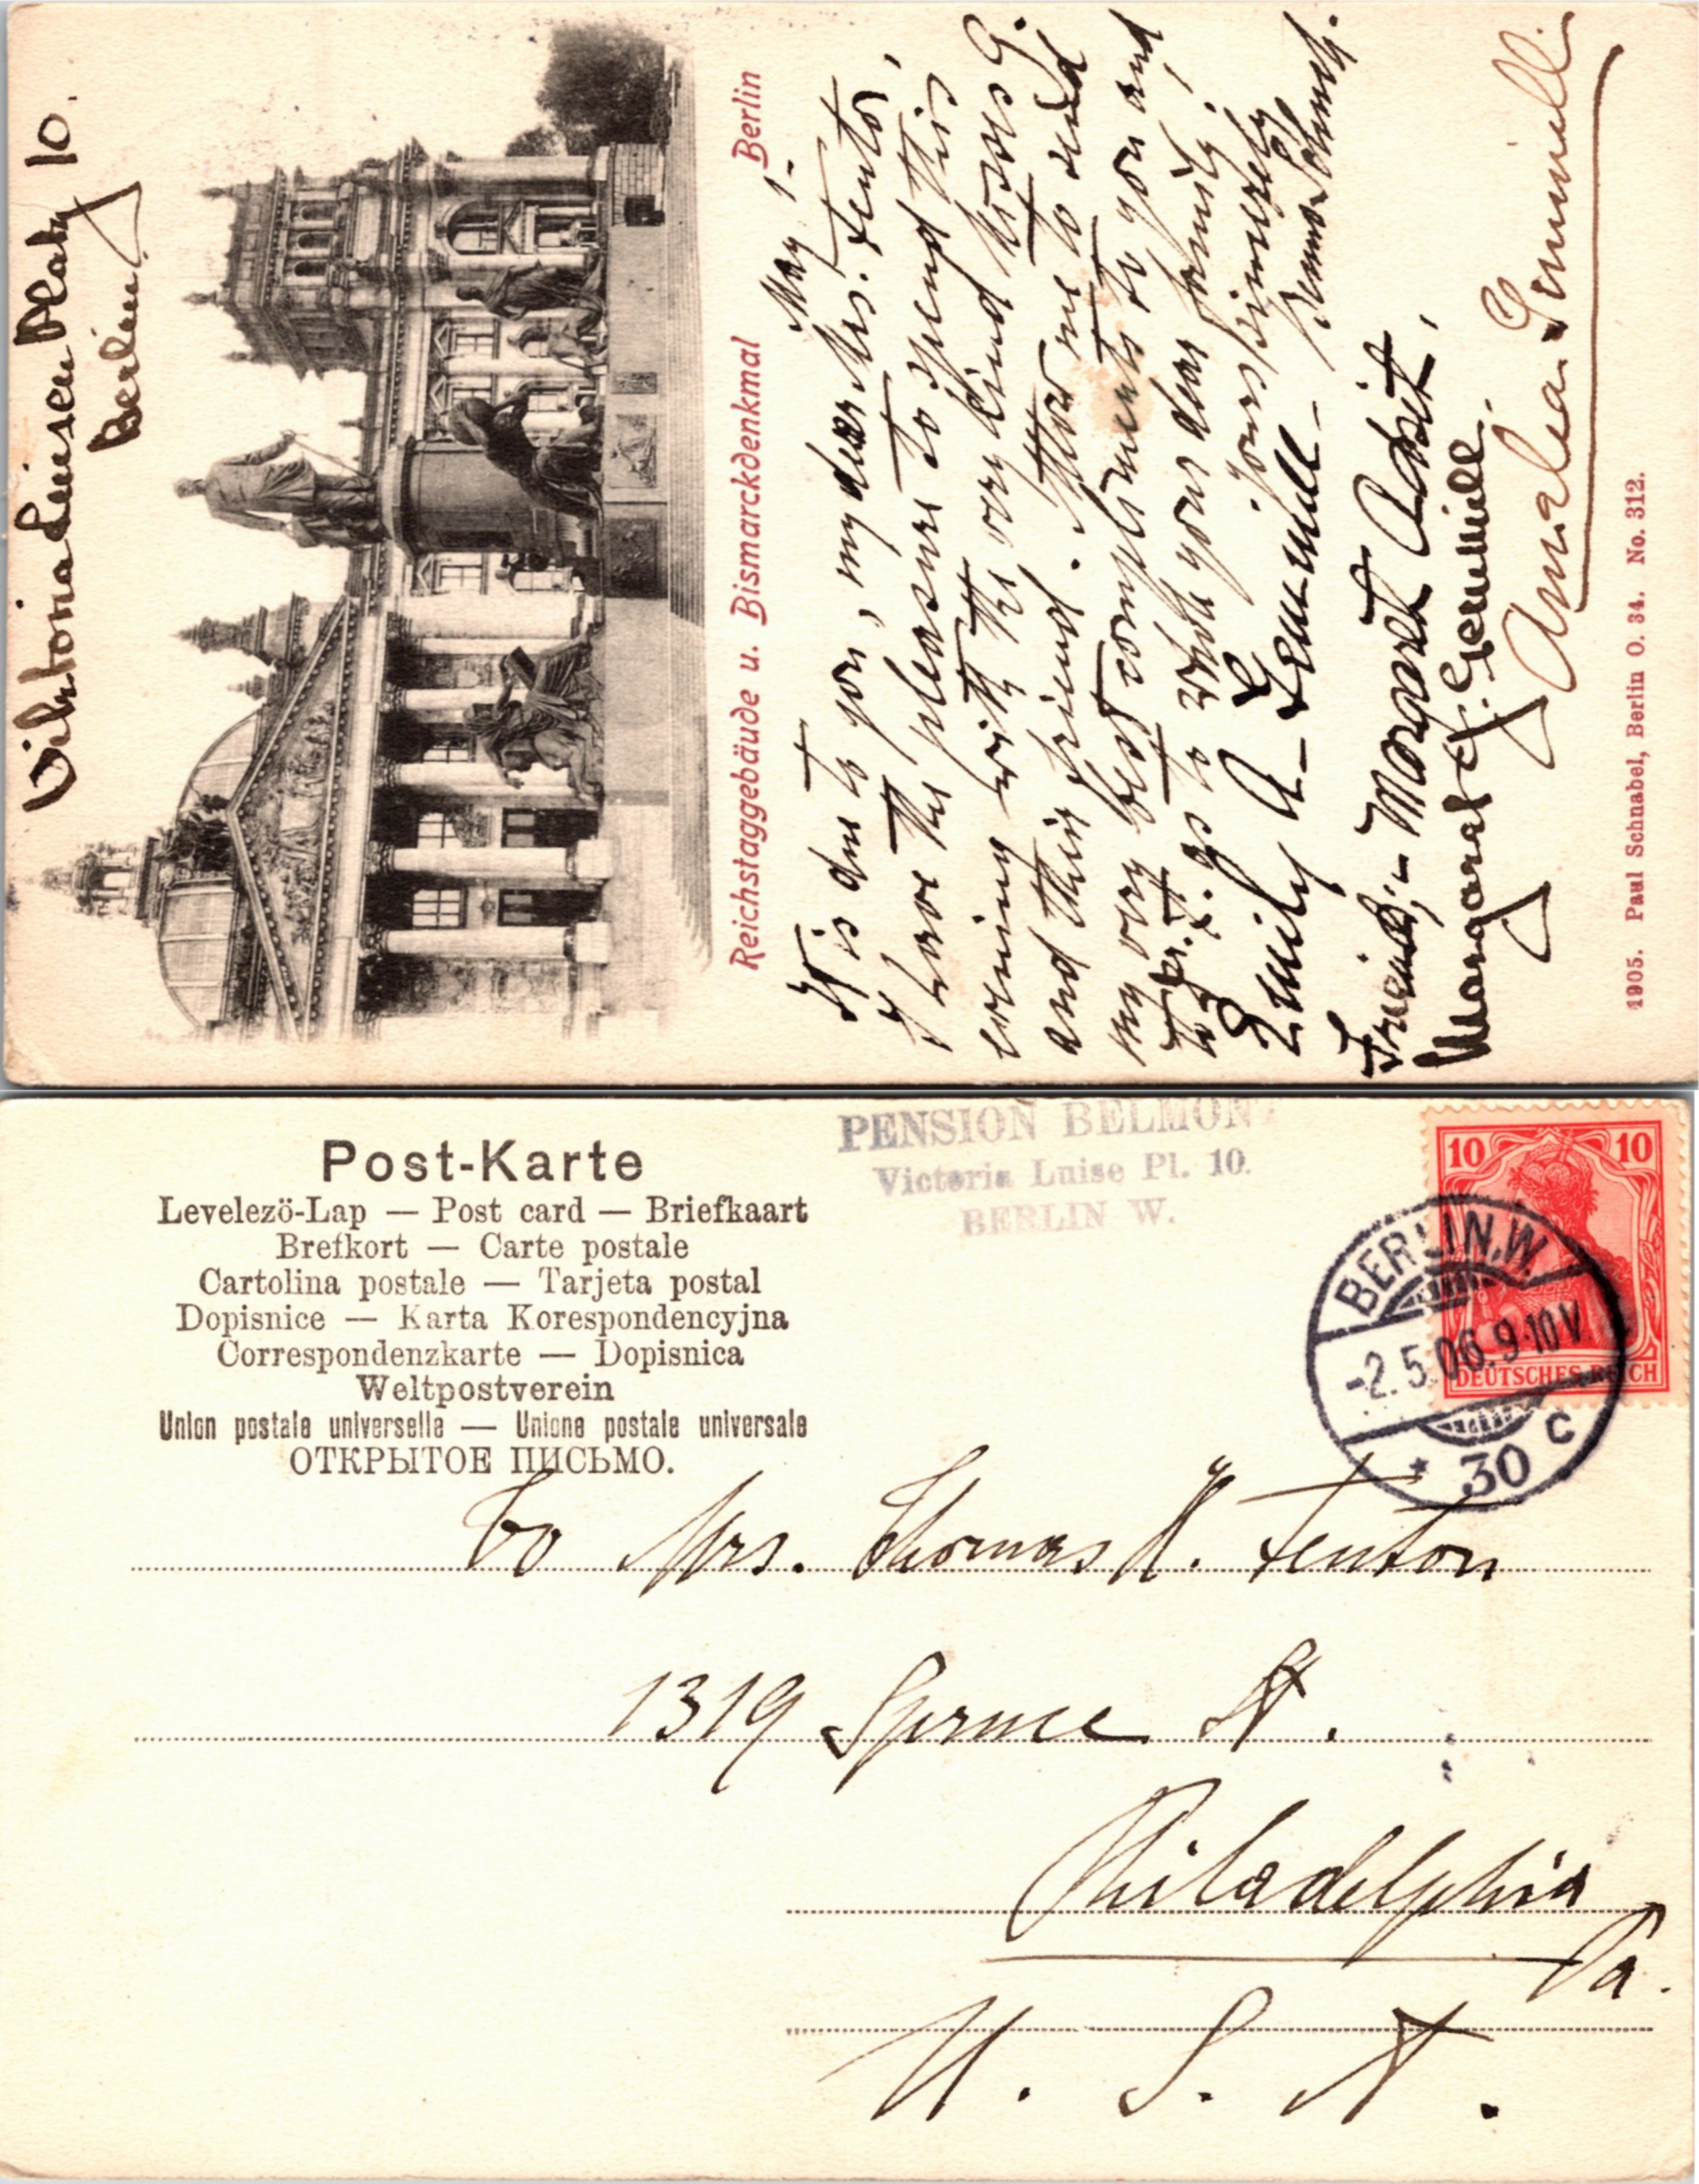 Viktoria Luisen Platz 10.
Berlin.
Reichstaggebäude u. Bismarckdenkmal Berlin
May 1-
It is due to you, my dear Mrs. Fenton,
I have the pleasure to spend this
evening with the very kind Misses G.
and their friend. Allow me to send
my very best compliments to you and
to Dr. F. as to whole your dear family!
Yours sincerely
Emily A. Gemmill-
Friend;- Margaret Adsit,
Margaret J. Gemmill.
Amelia Gemmill
1905. Paul Schnabel, Berlin O. 34. No. 312.
PENSION BELMONT
Victoria Luise Pl. 10.
BERLIN W.
Post-Karte
Levelezö-Lap — Post card — Briefkaart
Brefkort — Carte postale
Cartolina postale — Tarjeta postal
Dopisnice — Karta Korespondencyjna
Correspondenzkarte — Dopisnica
Weltpostverein
Union postale universelle — Unione postale universale
ОТКРЫТОЕ ПИСЬМО.
10 10
DEUTSCHES REICH
BERLIN.W.
-2.5.06.9-10V.
* 30 c
To Mrs. Thomas H. Fenton
1319 Spruce St.
Philadelphia
Pa.
U. S. A.